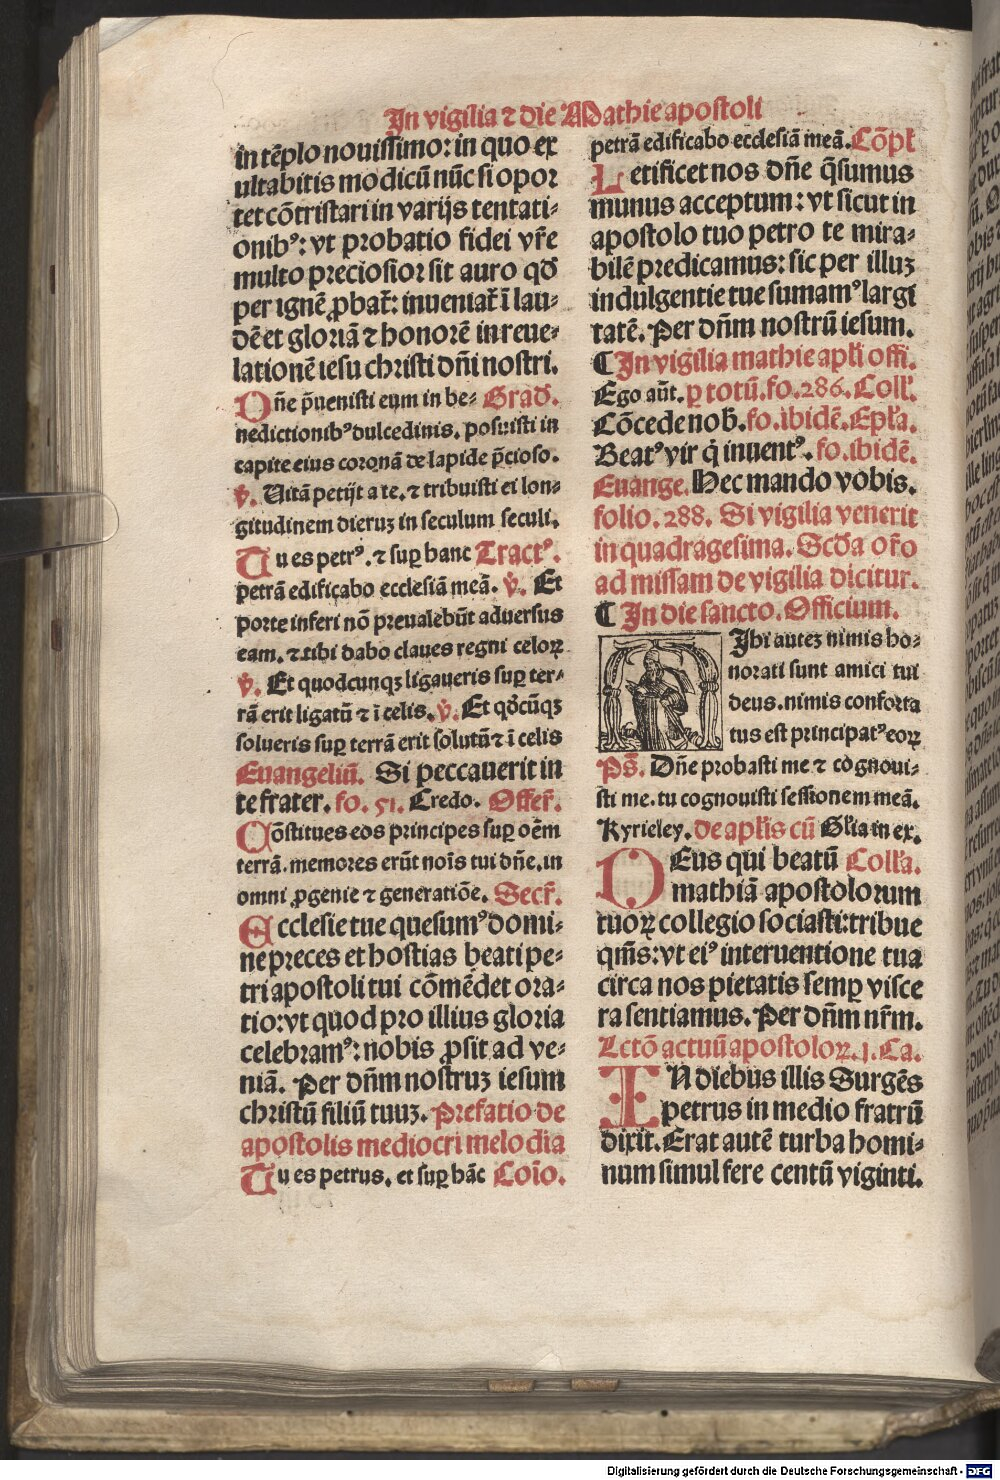 In vigilia ⁊ die Mathie apostoli
in tẽplo nouissimo: in quo ex
ultabitis modicũ nũc si opor
tet cõtristari in varijs tentati-
onibꝰ: vt probatio fidei vr̃e
multo preciosior sit auro qđ
per ignẽ ꝓbat᷑: inueniat᷑ ĩ lau-
dẽ et gloriã ⁊ honorẽ in reue-
lationẽ iesu christi dñi nostri.
Dñe p̃uenisti eum in be- Grad̃.
nedictionibꝰ dulcedinis. posuisti in
capite eius coronã de lapide p̃cioso.
℣. Uitã petijt a te. ⁊ tribuisti ei lon-
gitudinem dieruꝫ in seculum seculi.
Tu es petrꝰ. ⁊ suꝑ hanc Tractꝰ.
petrã edificabo ecclesiã meã. ℣. Et
porte inferi nõ preualebũt aduersus
eam. ⁊ tibi dabo claues regni celoꝝ
℣. Et quodcunqꝫ ligaueris suꝑ ter-
rã erit ligatũ ⁊ ĩ celis. ℣. Et qđcũqꝫ
solueris suꝑ terrã erit solutũ ⁊ ĩ celis
Euangeliũ. Si peccauerit in
te frater. fo. 51. Credo. Offer̃.
Cõstitues eos principes suꝑ oẽm
terrã. memores erũt noĩs tui dñe. in
omni ꝓgenie ⁊ generatiõe. Secr̃.
Ecclesie tue quesumꝰ domi-
ne preces et hostias beati pe-
tri apostoli tui cõmẽdet ora-
tio: vt quod pro illius gloria
celebramꝰ: nobis ꝓsit ad ve-
niã. Per dñm nostruꝫ iesum
christũ filiũ tuuꝫ. Prefatio de
apostolis mediocri melodia
Tu es petrus. et suꝑ hãc Coĩo.
petrã edificabo ecclesiã meã. Cõpl̃
Letificet nos dñe q̃sumus
munus acceptum: vt sicut in
apostolo tuo petro te mira-
bilẽ predicamus: sic per illuꝫ
indulgentie tue sumamꝰ largi
tatẽ. Per dñm nostrũ iesum.
¶ In vigilia mathie apl̃i offi.
Ego aũt. ꝑ totũ. fo. 286. Coll̃.
Cõcede nob̃. fo. ibidẽ. Epl̃a.
Beatꝰ vir q̇ inuentꝰ. fo. ibidẽ.
Euange. Hec mando vobis.
folio. 288. Si vigilia venerit
in quadragesima. Scđa or̃o
ad missam de vigilia dicitur.
¶ In die sancto. Officium.
MIhi auteꝫ nimis ho-
norati sunt amici tui
deus. nimis conforta
tus est principatꝰ eoꝝ
Ps̃. Dñe probasti me ⁊ cognoui-
sti me. tu cognouisti sessionem meã.
Kyrieley. de apl̃is cũ Gl̃ia in ex.
DEus qui beatũ Coll̃a.
mathiã apostolorum
tuoꝝ collegio sociasti: tribue
qm̃s: vt eiꝰ interuentione tua
circa nos pietatis semꝑ visce
ra sentiamus. Per dñm nr̃m.
Lctõ actuũ apostoloꝝ. 1. Ca.
IN diebus illis Surgẽs
petrus in medio fratrũ
dixit. Erat autẽ turba homi-
num simul fere centũ viginti.
Digitalisierung gefördert durch die Deutsche Forschungsgemeinschaft - DFG